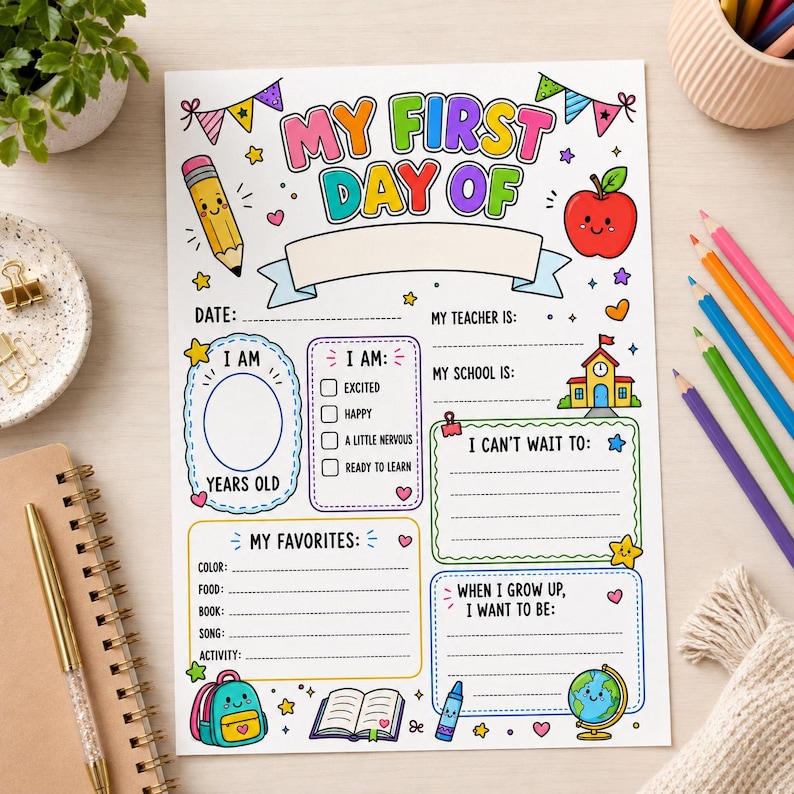 MY FIRST
DAY OF
DATE:
MY TEACHER IS:
MY SCHOOL IS:
I AM
YEARS OLD
I AM:
EXCITED
HAPPY
A LITTLE NERVOUS
READY TO LEARN
I CAN'T WAIT TO:
MY FAVORITES:
COLOR:
FOOD:
BOOK:
SONG:
ACTIVITY:
WHEN I GROW UP,
I WANT TO BE: